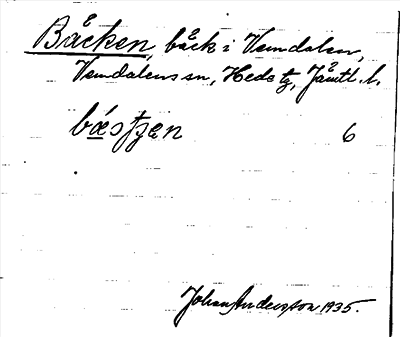 Båcken, båck i Vemdalen,
Vemdalens sn, Hede tg, Jämtl. l.
båstjen 6
Johan Andersson 1935.